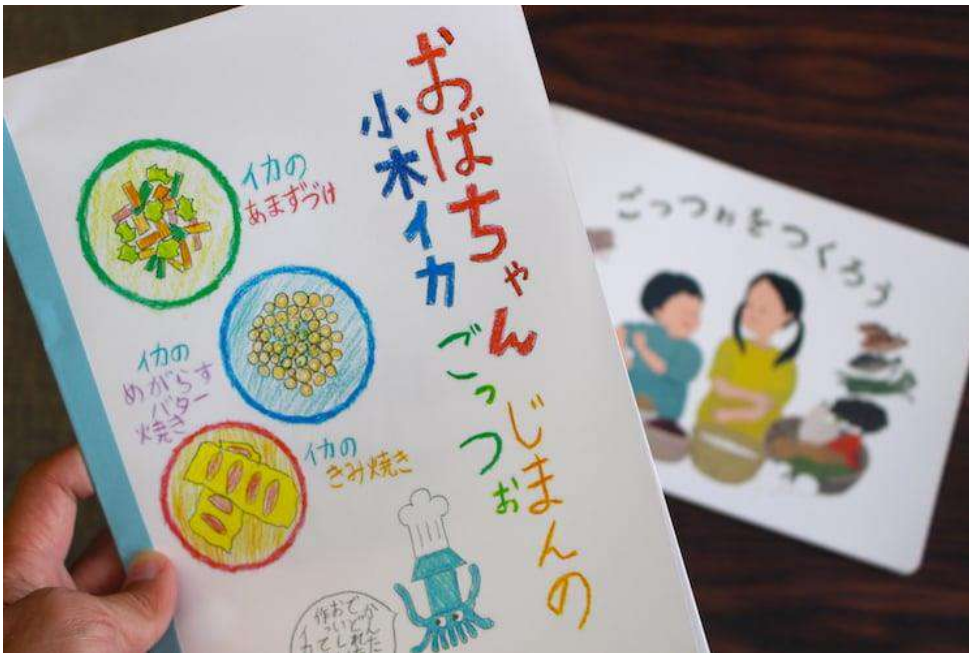 おばちゃんじまんの
小木イカごっつぉ
イカの
あまずづけ
イカの
めがらす
バター
焼き
イカの
きみ焼き
ごっつぉをつくろう